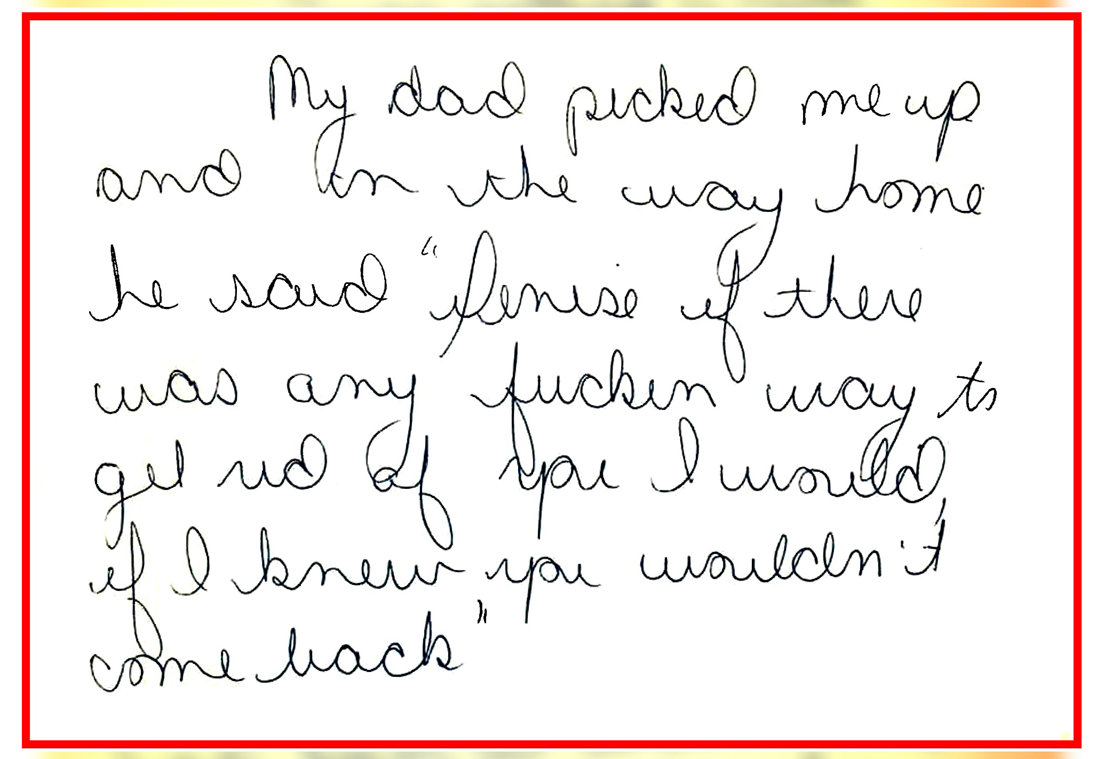 My dad picked me up
and on the way home
he said "Denise if there
was any fuckin way to
get rid of you I would,
if I knew you wouldn't
come back"